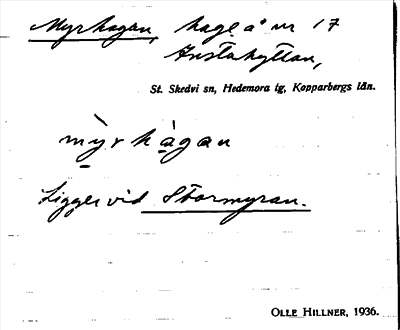 Myrhagan, hage å nr 17
Anstahyttan,
St. Skedvi sn, Hedemora tg, Kopparbergs län.
mỳrhàgan
Ligger vid Stormyran.
OLLE HILLNER, 1936.